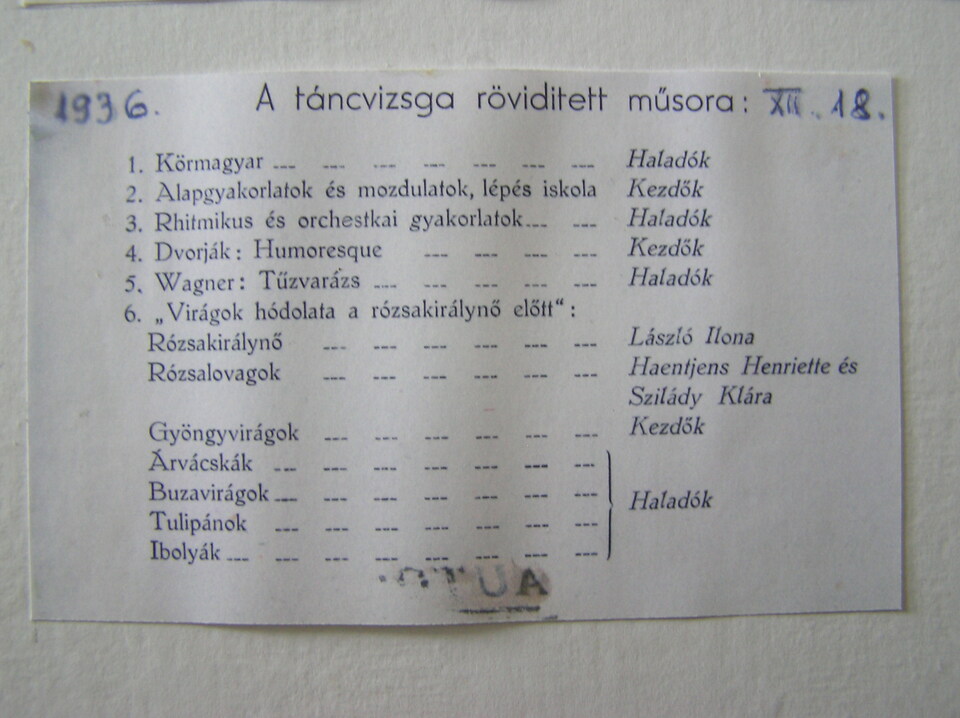 1936. A táncvizsga röviditett műsora: XII. 18.
1. Körmagyar --- --- --- --- --- --- --- Haladók
2. Alapgyakorlatok és mozdulatok, lépés iskola Kezdők
3. Rhitmikus és orchestkai gyakorlatok --- --- Haladók
4. Dvorják: Humoresque --- --- --- --- Kezdők
5. Wagner: Tűzvarázs --- --- --- --- --- Haladók
6. „Virágok hódolata a rózsakirálynő előtt“:
Rózsakirálynő --- --- --- --- --- --- László Ilona
Rózsalovagok --- --- --- --- --- --- Haentjens Henriette és
Szilády Klára
Gyöngyvirágok --- --- --- --- --- --- Kezdők
Árvácskák --- --- --- --- --- --- ---
Buzavirágok --- --- --- --- --- --- ---
Haladók
Tulipánok --- --- --- --- --- --- ---
Ibolyák --- --- --- --- --- --- --- ---